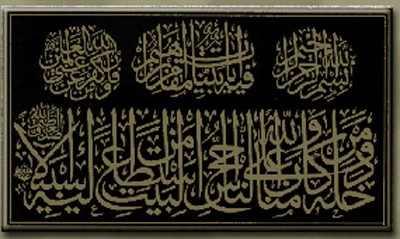 بسم الله الرحمن الرحيم
فيه آيات بينات مقام إبراهيم
ومن كفر فإن الله غني عن العالمين
ومن دخله كان آمنا ولله على الناس حج البيت من استطاع إليه سبيلا